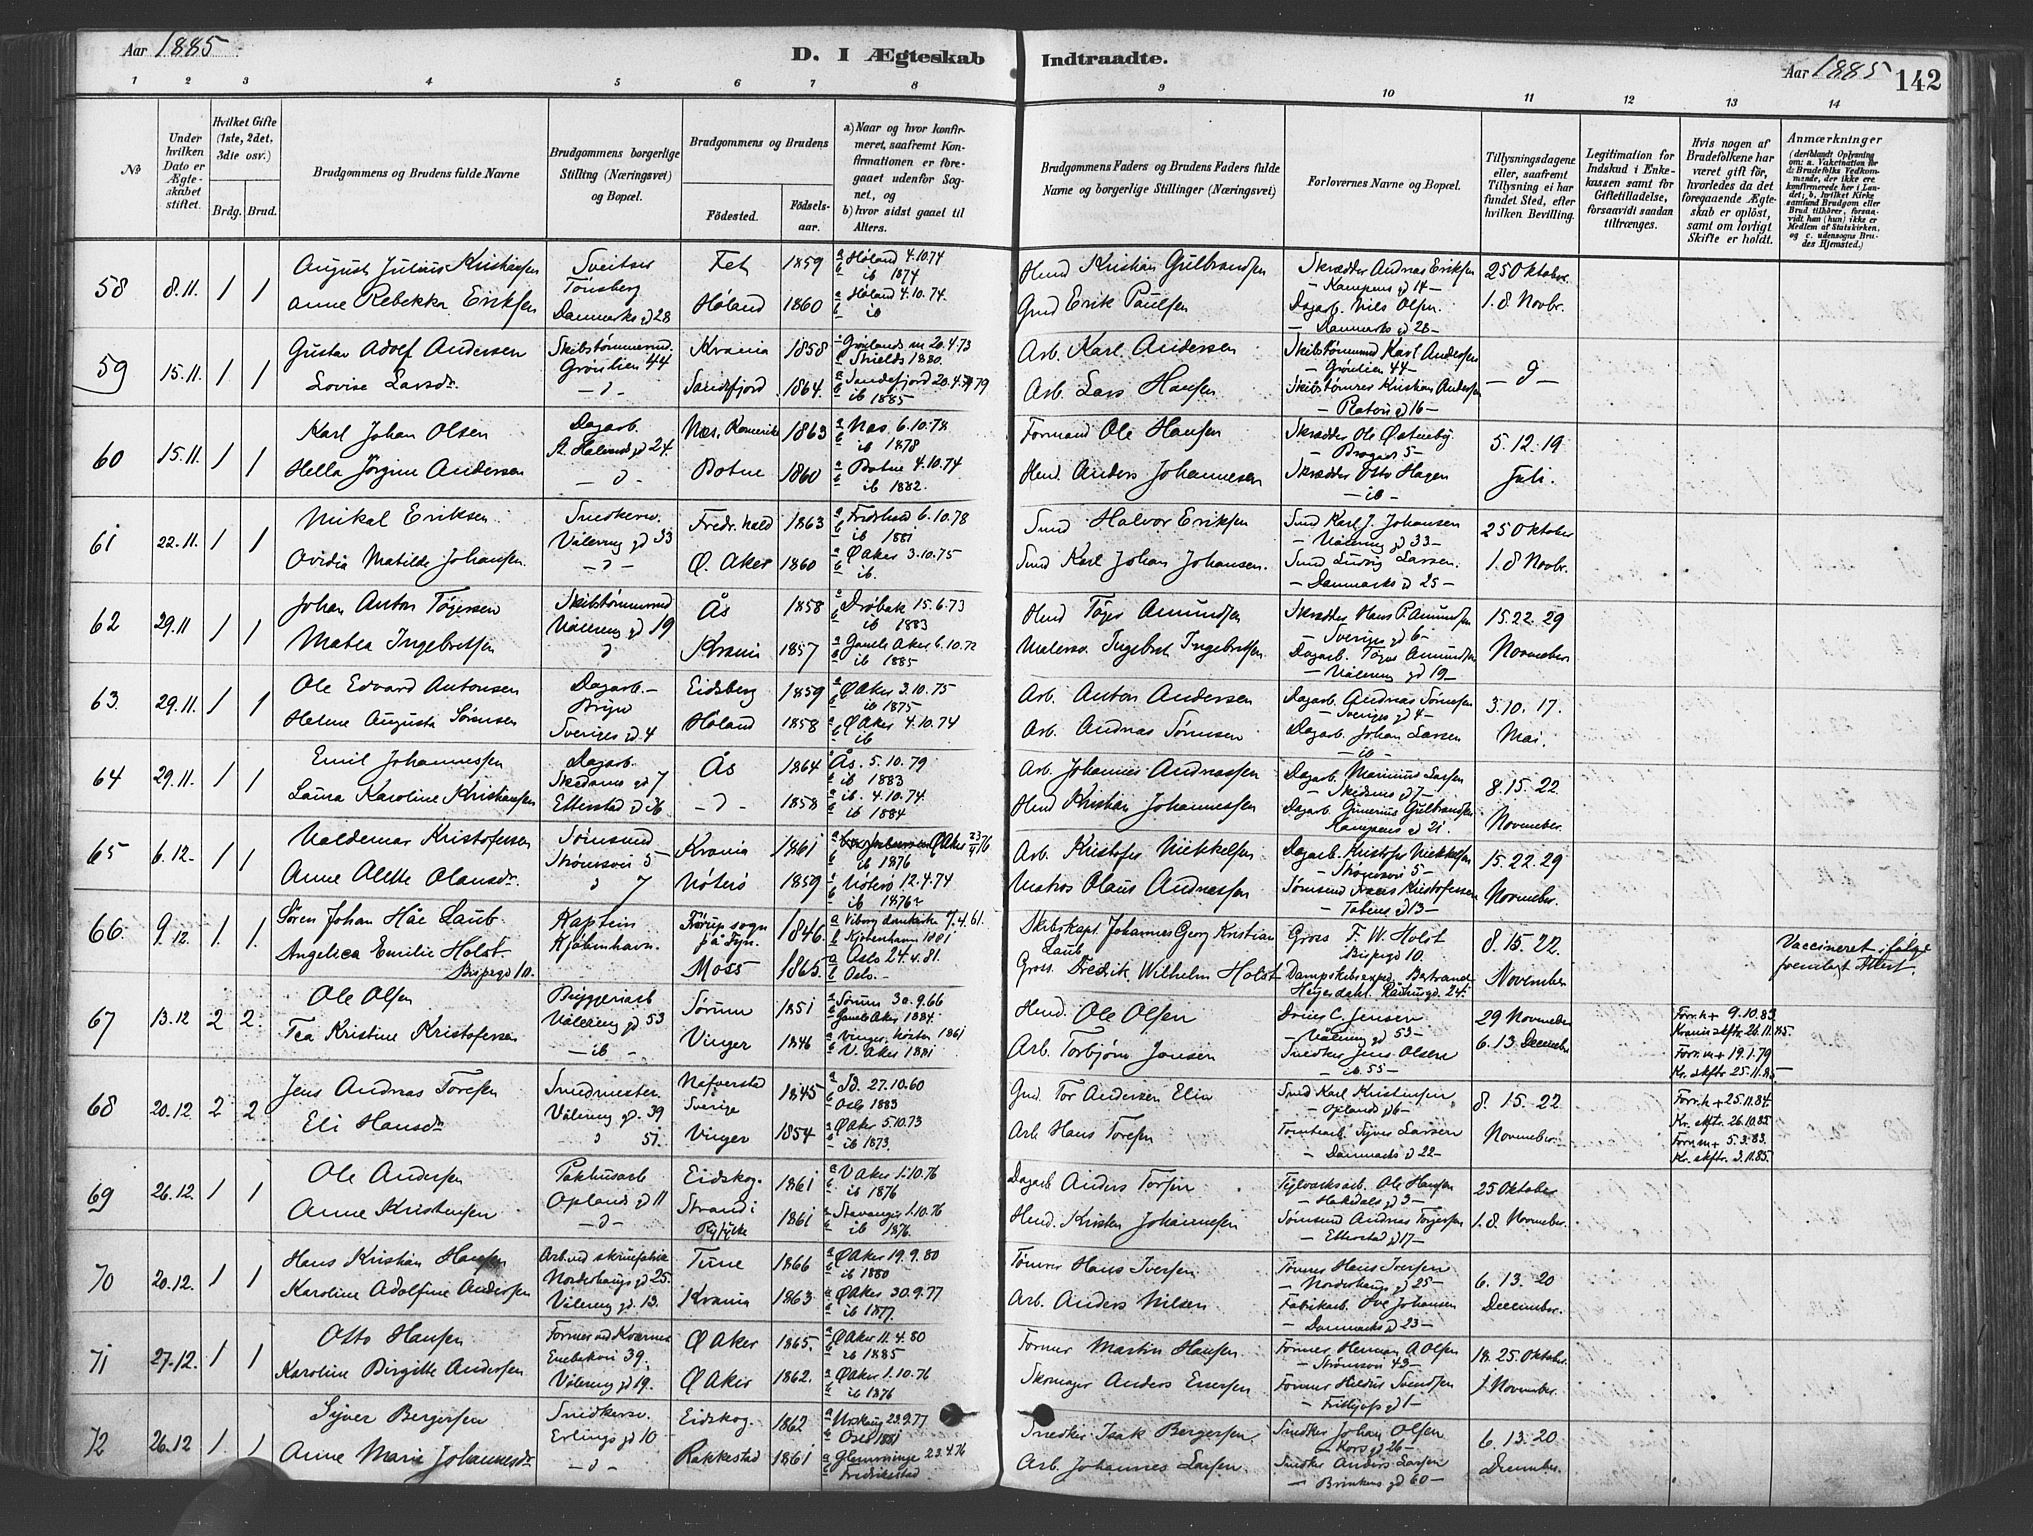 Aar 1885
D. I Ægteskab Indtraadte.
Aar 1885
142
1 2 3 4 5 6 7 8 9 10 11 12 13 14
No
Under hvilken Dato er Ægteskabet stiftet.
Hvilket Gifte (1ste, 2det, 3die osv.)
Brdg. Brud.
Brudgommens og Brudens fulde Navne
Brudgommens borgerlige Stilling (Næringsvei) og Bopæl.
Brudgommens og Brudens
Fødested.
Fødselsaar.
a) Naar og hvor konfirmeret, saafremt Konfirmationen er foregaaet udenfor Sognet, og
b) hvor sidst gaaet til Alters.
Brudgommens Faders og Brudens Faders fulde Navne og borgerlige Stillinger (Næringsvei)
Forlovernes Navne og Bopæl.
Tillysningsdagene eller, saafremt Tillysning ei har fundet Sted, efter hvilken Bevilling.
Legitimation for Indskud i Enkekassen samt for Giftetilladelse, forsaavidt saadan tiltrænges.
Hvis nogen af Brudefolkene har været gift før, hvorledes da det foregaaende Ægteskab er opløst, samt om lovligt Skifte er holdt.
Anmærkninger
(deriblandt Oplysning om: a. Vakcination for de Brudefolks Vedkommende, der ikke ere konfirmerede her i Landet; b. hvilket Kirkesamfund Brudgom eller Brud tilhører, forsaavidt han (hun) ikke er Medlem af Statskirken, og c. udensogns Brudes Hjemsted.)
58 8.11. 1 1 August Julius Kristiansen Sveitser Fet 1859 a Høland 4.10.74 Husmd Kristian Gulbrandsen Skrædder Andreas Eriksen 25 Oktober
Tønsberg b ib 1874 – Kampens gd 14 –
Anne Rebekka Eriksen Danmarks gd 28 Høland 1860 a Høland 4.10.74. Gmd Erik Paulsen Dagarb. Nils Olsen 1. 8 Novbr.
b ib – Danmarks gd 28 –
59 15.11. 1 1 Gustav Adolf Andersen Skibstømmermd. Krania 1858 a Grønlands m 20.4.73 Arb. Karl Andersen Skibstømmd Karl Andersen
Grønlien 44 b Shields 1880. – Grønlien 44 –
Lovise Larsdr – " – Sandefjord 1864. a Sandefjord 20.4.79 Arb. Lars Hansen Skibstømrer Kristian Andersen – " –
b ib 1885 gd 16 –
60 15.11. 1 1 Karl Johan Olsen Dagarb. Næs, Romerike 1863 a Næs 6.10.78 Formand Ole Hansen Skrædder Ole Østenby 5. 12. 19
St. Halvards gd 24. b ib 1878 5 –
Hella Jørgine Andersen – " – Botne 1860 a Botne 4.10.74 Hmd. Anders Johannesen Skrædder Otto Hagen Juli.
b ib 1882. – ib –
61 22.11. 1 1 Mikal Eriksen Snedkersv. Fredr.hald 1863 a Fredrhald 6.10.78 Smd Halvor Eriksen Smd Karl J. Johansen 25 Oktober
Vålereng gd 33 b ib 1881 – Vålereng gd 33 –
Ovidia Matilde Johansen. – " – Ø. Aker 1860 a Ø Aker 3.10.75 Smd Karl Johan Johansen. Smd Ludvig Larsen. 1. 8 Novbr.
b ib. – Danmarks gd 25 –
62 29.11 1 1 Johan Anton Tøgersen Skibstømmermd Ås 1858 a Drøbak 15.6.73 Hmd Tøger Amundsen Skrædder Hans P. Amundsen 15. 22. 29
Vålereng gd 19 b ib 1883 – Sveriges gd 6 –
Matea Ingebretsen " Krania 1857 a Gamle Aker 6.10.72 Malersv. Ingebret Ingebretsen Dagarb. Tøger Amundsen November
b ib 1885 – Vålereng gd 19 –
63. 29.11. 1 1 Ole Edvard Antonsen Dagarb. – Eidsberg 1859 a Ø Aker 3.10.75 Arb. Anton Andersen Dagarb. Andreas Sørensen 3. 10. 17.
Bryn b ib 1875 – Sveriges gd 4 –
Helene Augusta Sørensen Sveriges gd. 4 Høland 1858 a Ø Aker 4.10.74 Arb. Andreas Sørensen Dagarb. Johan Larsen Mai.
b ib – ib –
64 29.11. 1 1 Emil Johannessen Dagarb. Ås 1864 a Ås. 5.10.79 Arb. Johannes Andreassen Dagarb. Marinius Larsen 8. 15. 22
gd 7 b ib 1883 gd 7 –
Laura Karoline Kristiansen Etterstad gd 26 – " – 1858 a ib. 4.10.74. Hmd Kristian Johannessen Dagarb. Gunerius Gulbrandsen November.
b ib 1884 Kampens gd 21.
65 6.12. 1 1 Valdemar Kristofersen Sømand Krania 1861 Ø Aker 23/4 76 Arb. Kristofer Mikkelsen Dagarb. Kristofer Mikkelsen 15. 22. 29
Strømsvei 5 – b ib 1876 – Strømsvei 5 –
Anne Alette Olausdr " 7 Nøterø 1859 a Nøterø 12.4.74 Matros Olaus Andreassen Sømand Kristofersen November
b ib 1876 gd 13 –
66. 9.12. 1. 1. Søren Johan Håe Laub Kaptein sogn på Fyn. 1846. a Viborg domkirke 7.4.61. Skibskapt. Johannes Georg Kristian Laub Gross. F. W. Holst 8. 15. 22. Vaccineret ifølge
Kjøbenhavn. b Kjøbenhavn 1881 Bispegd 10. fremlagt Attest.
Angelica Emilie Holst Moss 1865. a Oslo 24.4.81. Gross. Fredrik Wilhelm Holst Dampskibsexped. Bertrand November
Bispegd 10. b Oslo. – Heyerdahl. Rådhusgd. 24.
67 13.12 2 2. Ole Olsen Bryggeriarb Sørum 1851 a Sørum 30.9.66 Hmd. Ole Olsen C. Jensen 29 November Forr. h + 9.10.83
Vålereng gd 53 b Gamle Aker 1884. – Vålereng gd 53 – Krania skftr 26.11.85
Tea Kristine Kristofersen – ib – Vinger 1846 a Vinger, høsten 1861 Arb. Torbjørn Jonsen Snedker Jens Olsen 6. 13 December Forr. m + 19.1.79
b V. Aker 1881 – ib. 55 – Kr. skftr 25.11.85.
68 20.12. 2 2 Jens Andreas Toresen Snedmester. Nafverstad 1845 a Sd. 27.10.60 Gmd. Tor Andersen Elia Smd Karl Kristensen 8. 15. 22 Forr. h + 25.11.84.
Vålereng gd. 39 Sverige b Oslo 1883 – Oplands gd 6 – Kr. skftr. 26.10.85.
Eli Hansdr " 51. Vinger 1854 a Ø Aker 5.10.73 Arb Hans Toresen Tomtearb. Syver Larsen November. Forr. m + 5.3.83.
b ib 1873. – Danmarks gd 22 – Kr. skftr. 3.11.85.
69 26.12. 1 1 Ole Andersen Pakhusarb Eidskog. 1861 a V Aker 1.10.76 Dagarb Anders Torsen Teglværksarb. Ole Hansen 25 Oktober
Oplands gd 11 b ib 1876 – Hakedals gd 3 –
Anne Kristensen – " – Strand i Ryfylke 1861 a Stavanger 1.10.76 Hmd. Kristen Johannesen Sømand Andreas Torgersen 1. 8. November.
b ib 1876. – Etterstad gd 17 –
70 20.12. 1 1 Hans Kristian Hansen Arb. ved skruefabrik Tune 1866 a Ø Aker 19.9.80 Tømrer Hans Iversen Tømrer Hans Iversen 6. 13. 20
Norderhaugs gd 25. b ib 1880 – Norderhaug gd 25 –
Karoline Adolfine Andersen Vålereng gd. 13. Krania 1863 a Ø Aker. 30.9.77 Arb. Anders Nilsen Fabrikarb. Johansen December.
b ib 1877. – Danmarks gd 23 –
71 27.12. 1 1 Otto Hansen Former ved Kværner Ø Aker 1865. a Ø Aker 11.4.80 Former Martin Hansen Former Herman A Olsen 18. 25. Oktober.
Enebakvei 39. b ib 1885 – Strømsvei 43 –
Karoline Birgitte Andersen Vålereng gd 19. Ø Aker 1862. a Ø Aker 1.10.76 Skomager Anders Enersen Former Hildus Svendsen 1 November.
b ib 1876 – Fritjofs gd 1 –
72 26.12 1. 1 Syver Bergersen Snedkersv. Eidskog. 1862 a Urskoug 23.9.77 Snedker Isak Bergersen. Snedker Johan Olsen 6. 13. 20
Erlings gd 10 – b Oslo 1881 – Kors gd 26 –
Anne Marie Johannesdr – " – Rakkestad 1861 a Glemminge 23.4.76 Arb. Johannes Larsen. Snedker Anders Larsen December.
b Fredrikstad – Brinkens gd 60 –